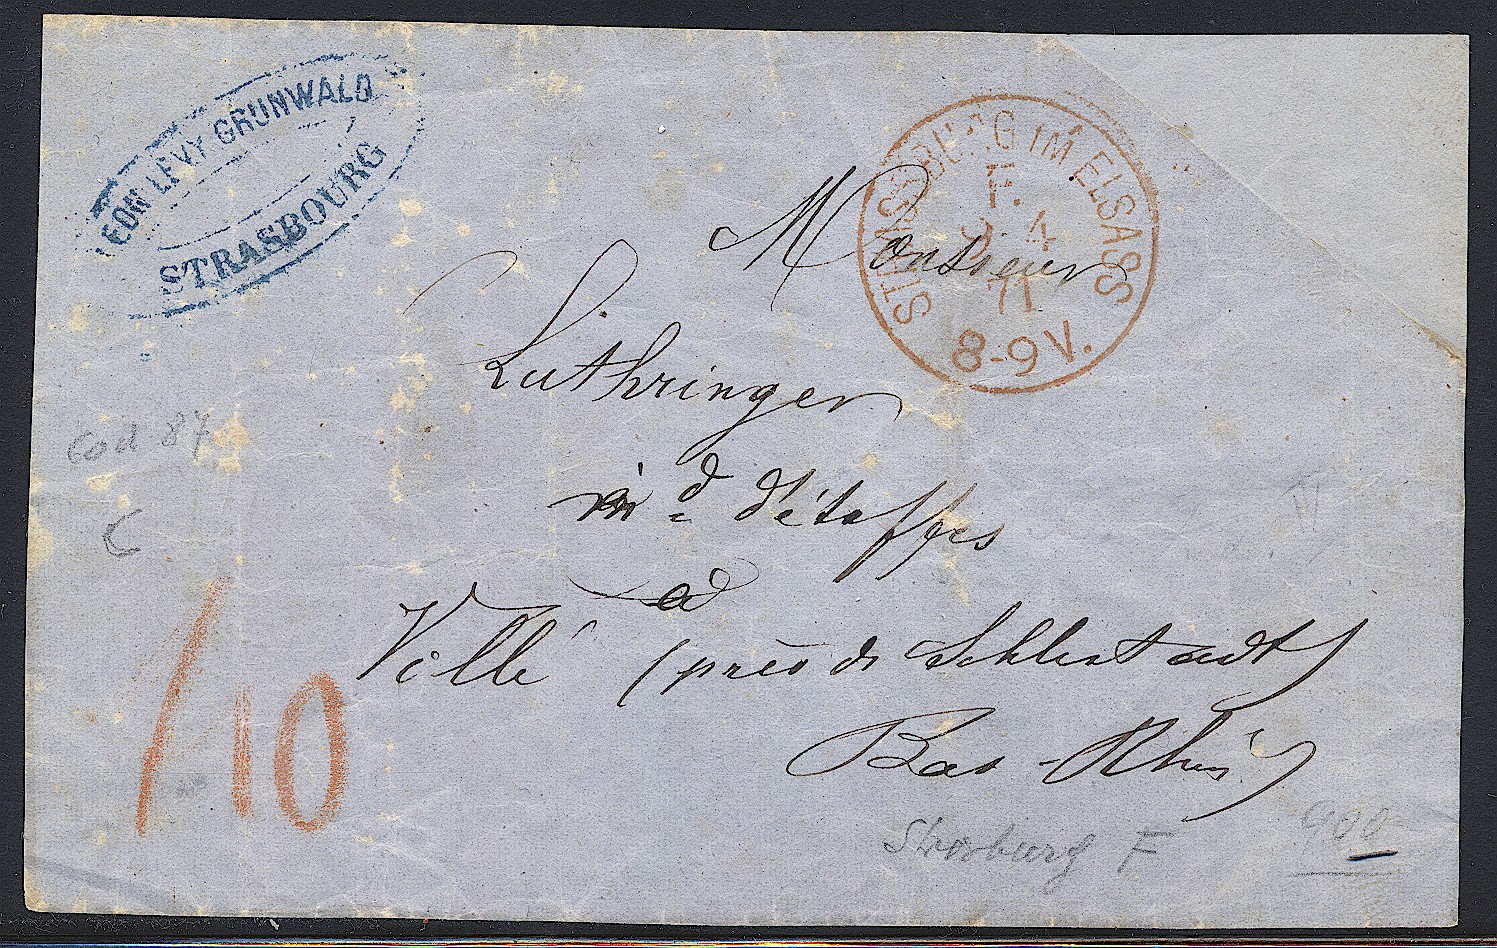 LEON LEVY GRUNWALD
STRASBOURG
STRASSBURG IM ELSASS
F.
4
71
8-9 V.
Monsieur
Luthringer
md d'étoffes
à
Villé (près de Schlestadt)
Bas-Rhin
God 87
C
/10
Strasburg F
900